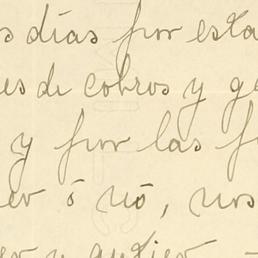 s días por esta
es de cobros y ge
y por las f
er ó nó, nos